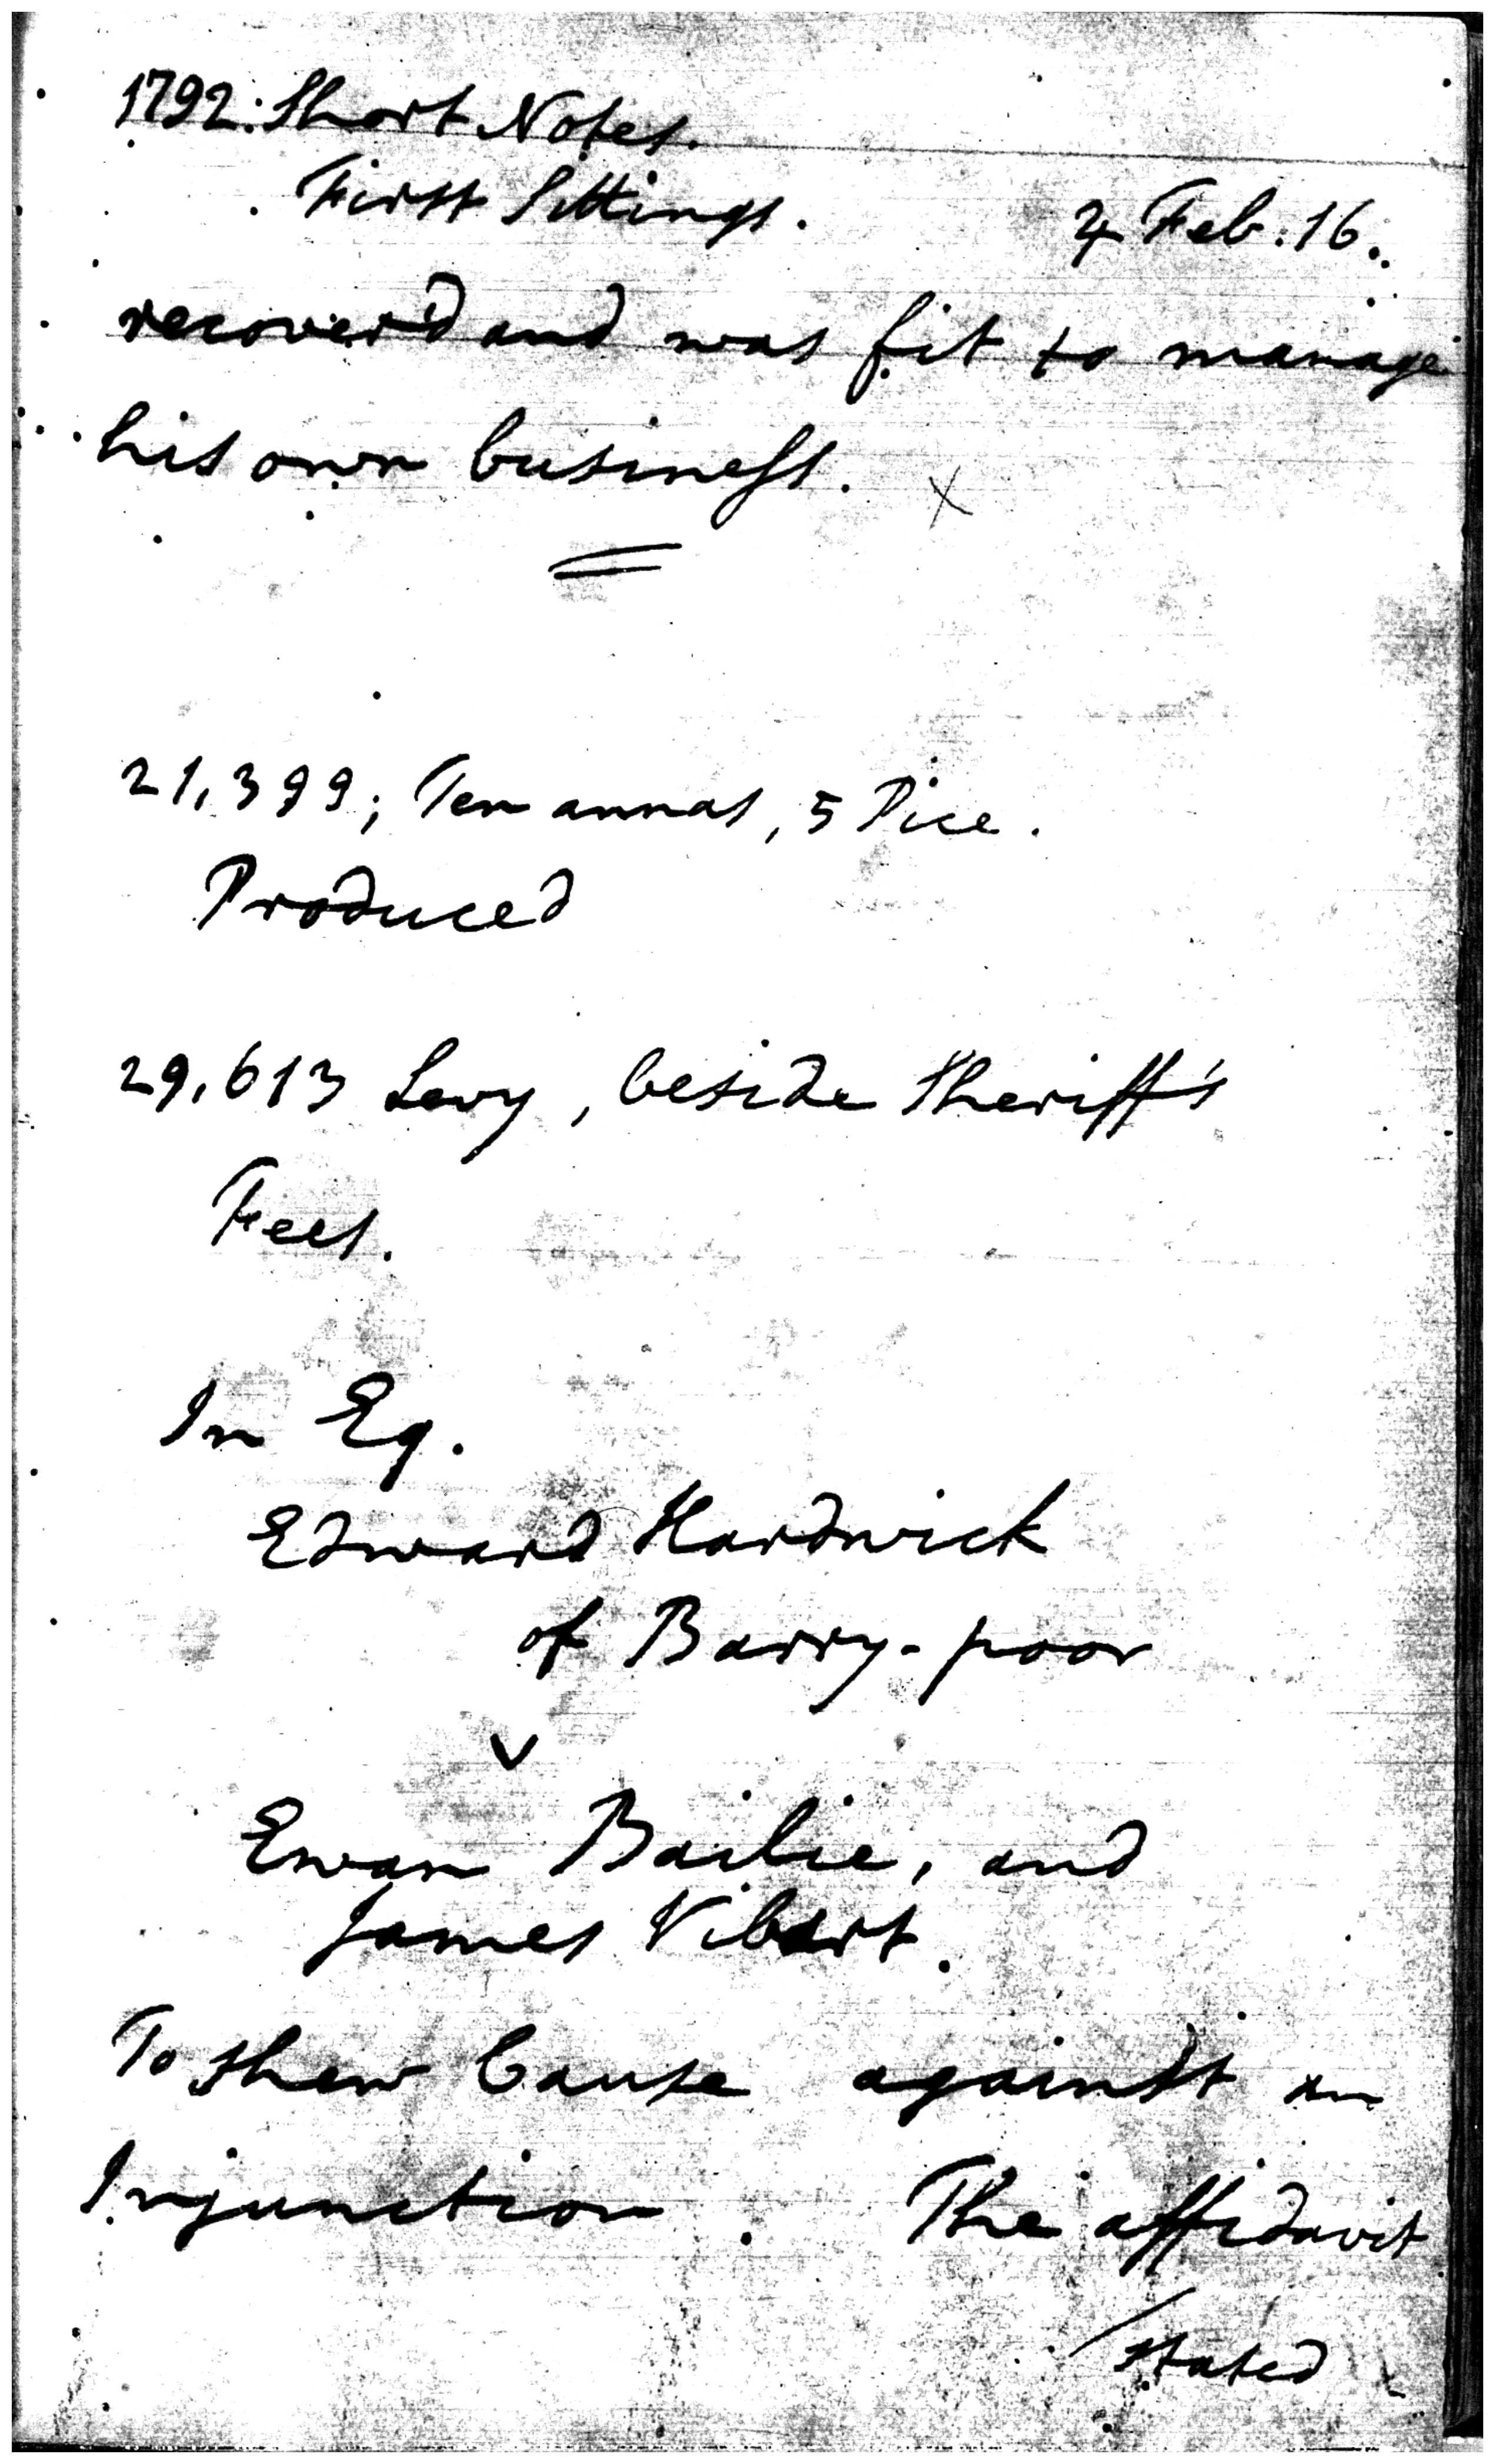 1792. Short Notes.
First Sittings. ♃ Feb. 16.
recover'd and was fit to manage
his own business. X
21,399; Ten annas, 5 Pice.
Produced
29,613 Levy, beside Sheriff's
Fees.
In Eq.
Edward Hardwick
of Barry-poor
v
Ewan Bailie, and
James Vibart.
To shew Cause against an
Injunction. The affidavit
/stated